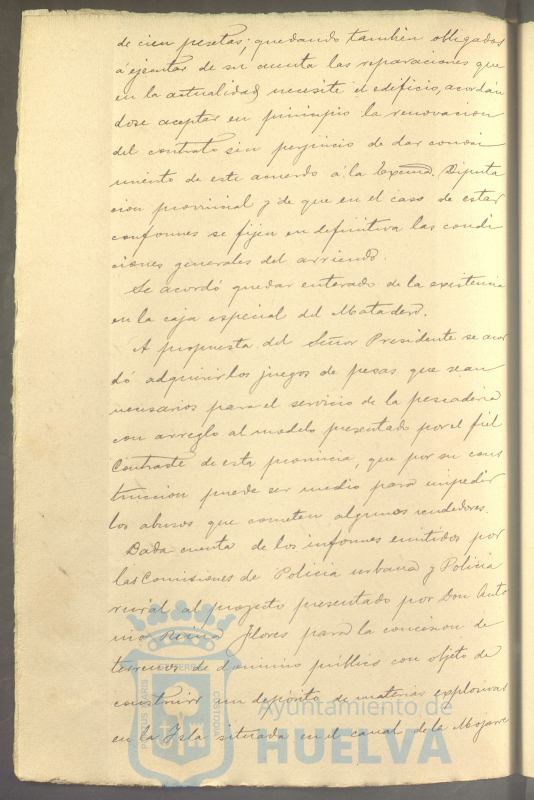 de cien pesetas; quedando también obligados
á ejecutar de su cuenta las reparaciones que
en la actualidad necesite el edificio, acordán
dose aceptar en principio la renovacion
del contrato sin perjuicio de dar conoci
miento de este acuerdo á la Excma. Diputa
cion provincial y de que en el caso de estar
conformes se fijen en definitiva las condi
ciones generales del arriendo.
Se acordó quedar enterado de la existencia
en la caja especial del Matadero.
A propuesta del Señor Presidente se acor
dó adquirir los juegos de pesas que sean
necesarios para el servicio de la pescaderia
con arreglo al modelo presentado por el fiel
Contraste de esta provincia, que por su cons
truccion puede ser medio para impedir
los abusos que cometen algunos vendedores.
Dada cuenta de los informes emitidos por
las Comisiones de Policia urbana y Policia
rural al proyecto presentado por Don Anto
nio Reina Flores para la concesion de
terrenos de dominio público con objeto de
construir un depósito de materias explosivas
en la Isla situada en el canal de la Mojarre
Ayuntamiento de
HUELVA
PORTUS MARIS
ET TERRÆ
CUSTODIA